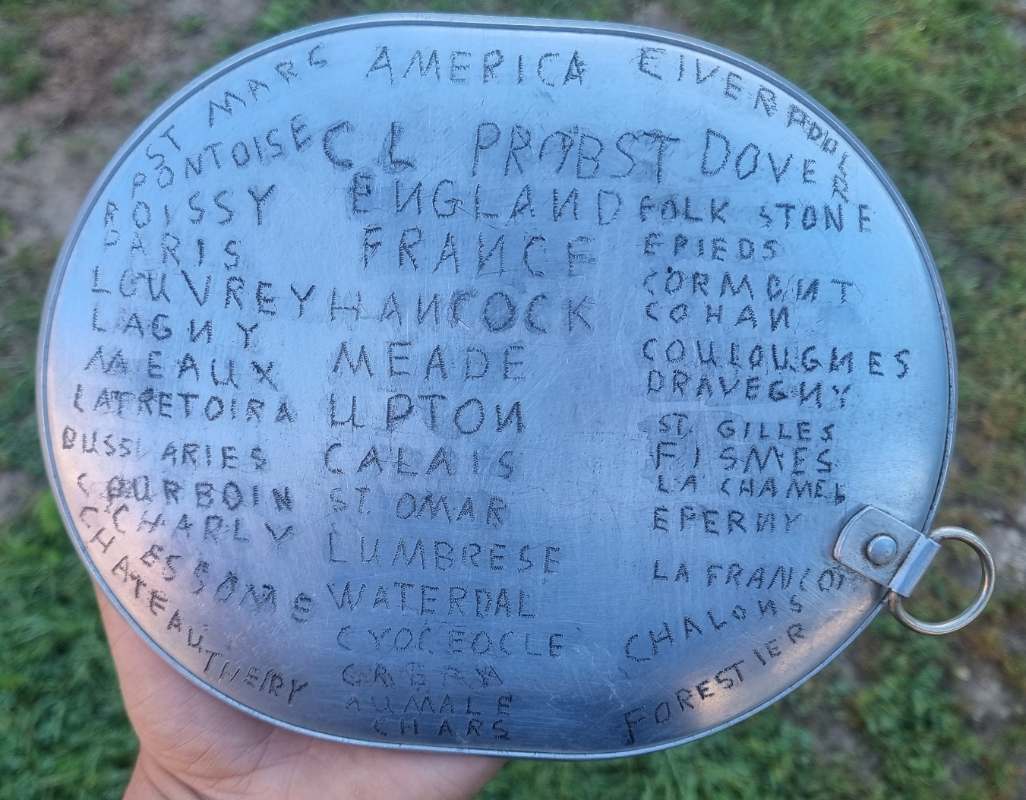 ST MARC
AMERICA
C L PROBST
ENGLAND
FRANCE
HANCOCK
MEADE
UPTON
CALAIS
ST. OMAR
LUMBRESE
WATERDAL
CYOCEOCLE
AUMALE
CHARS
PONTOISE
ROISSY
PARIS
LOUVREY
LAGNY
MEAUX
LATRETOIRA
BUSSIARIES
COURBOIN
CHARLY
ESSOME
CHATEAUTHERY
EIVERPOOL
DOVER
FOLKSTONE
EPIEDS
CORMONT
COHAN
COULOUGNES
DRAVEGNY
ST. GILLES
FISMES
LA CHAMEL
EPERNY
LA FRANCOT
CHALONS
FORESTIER